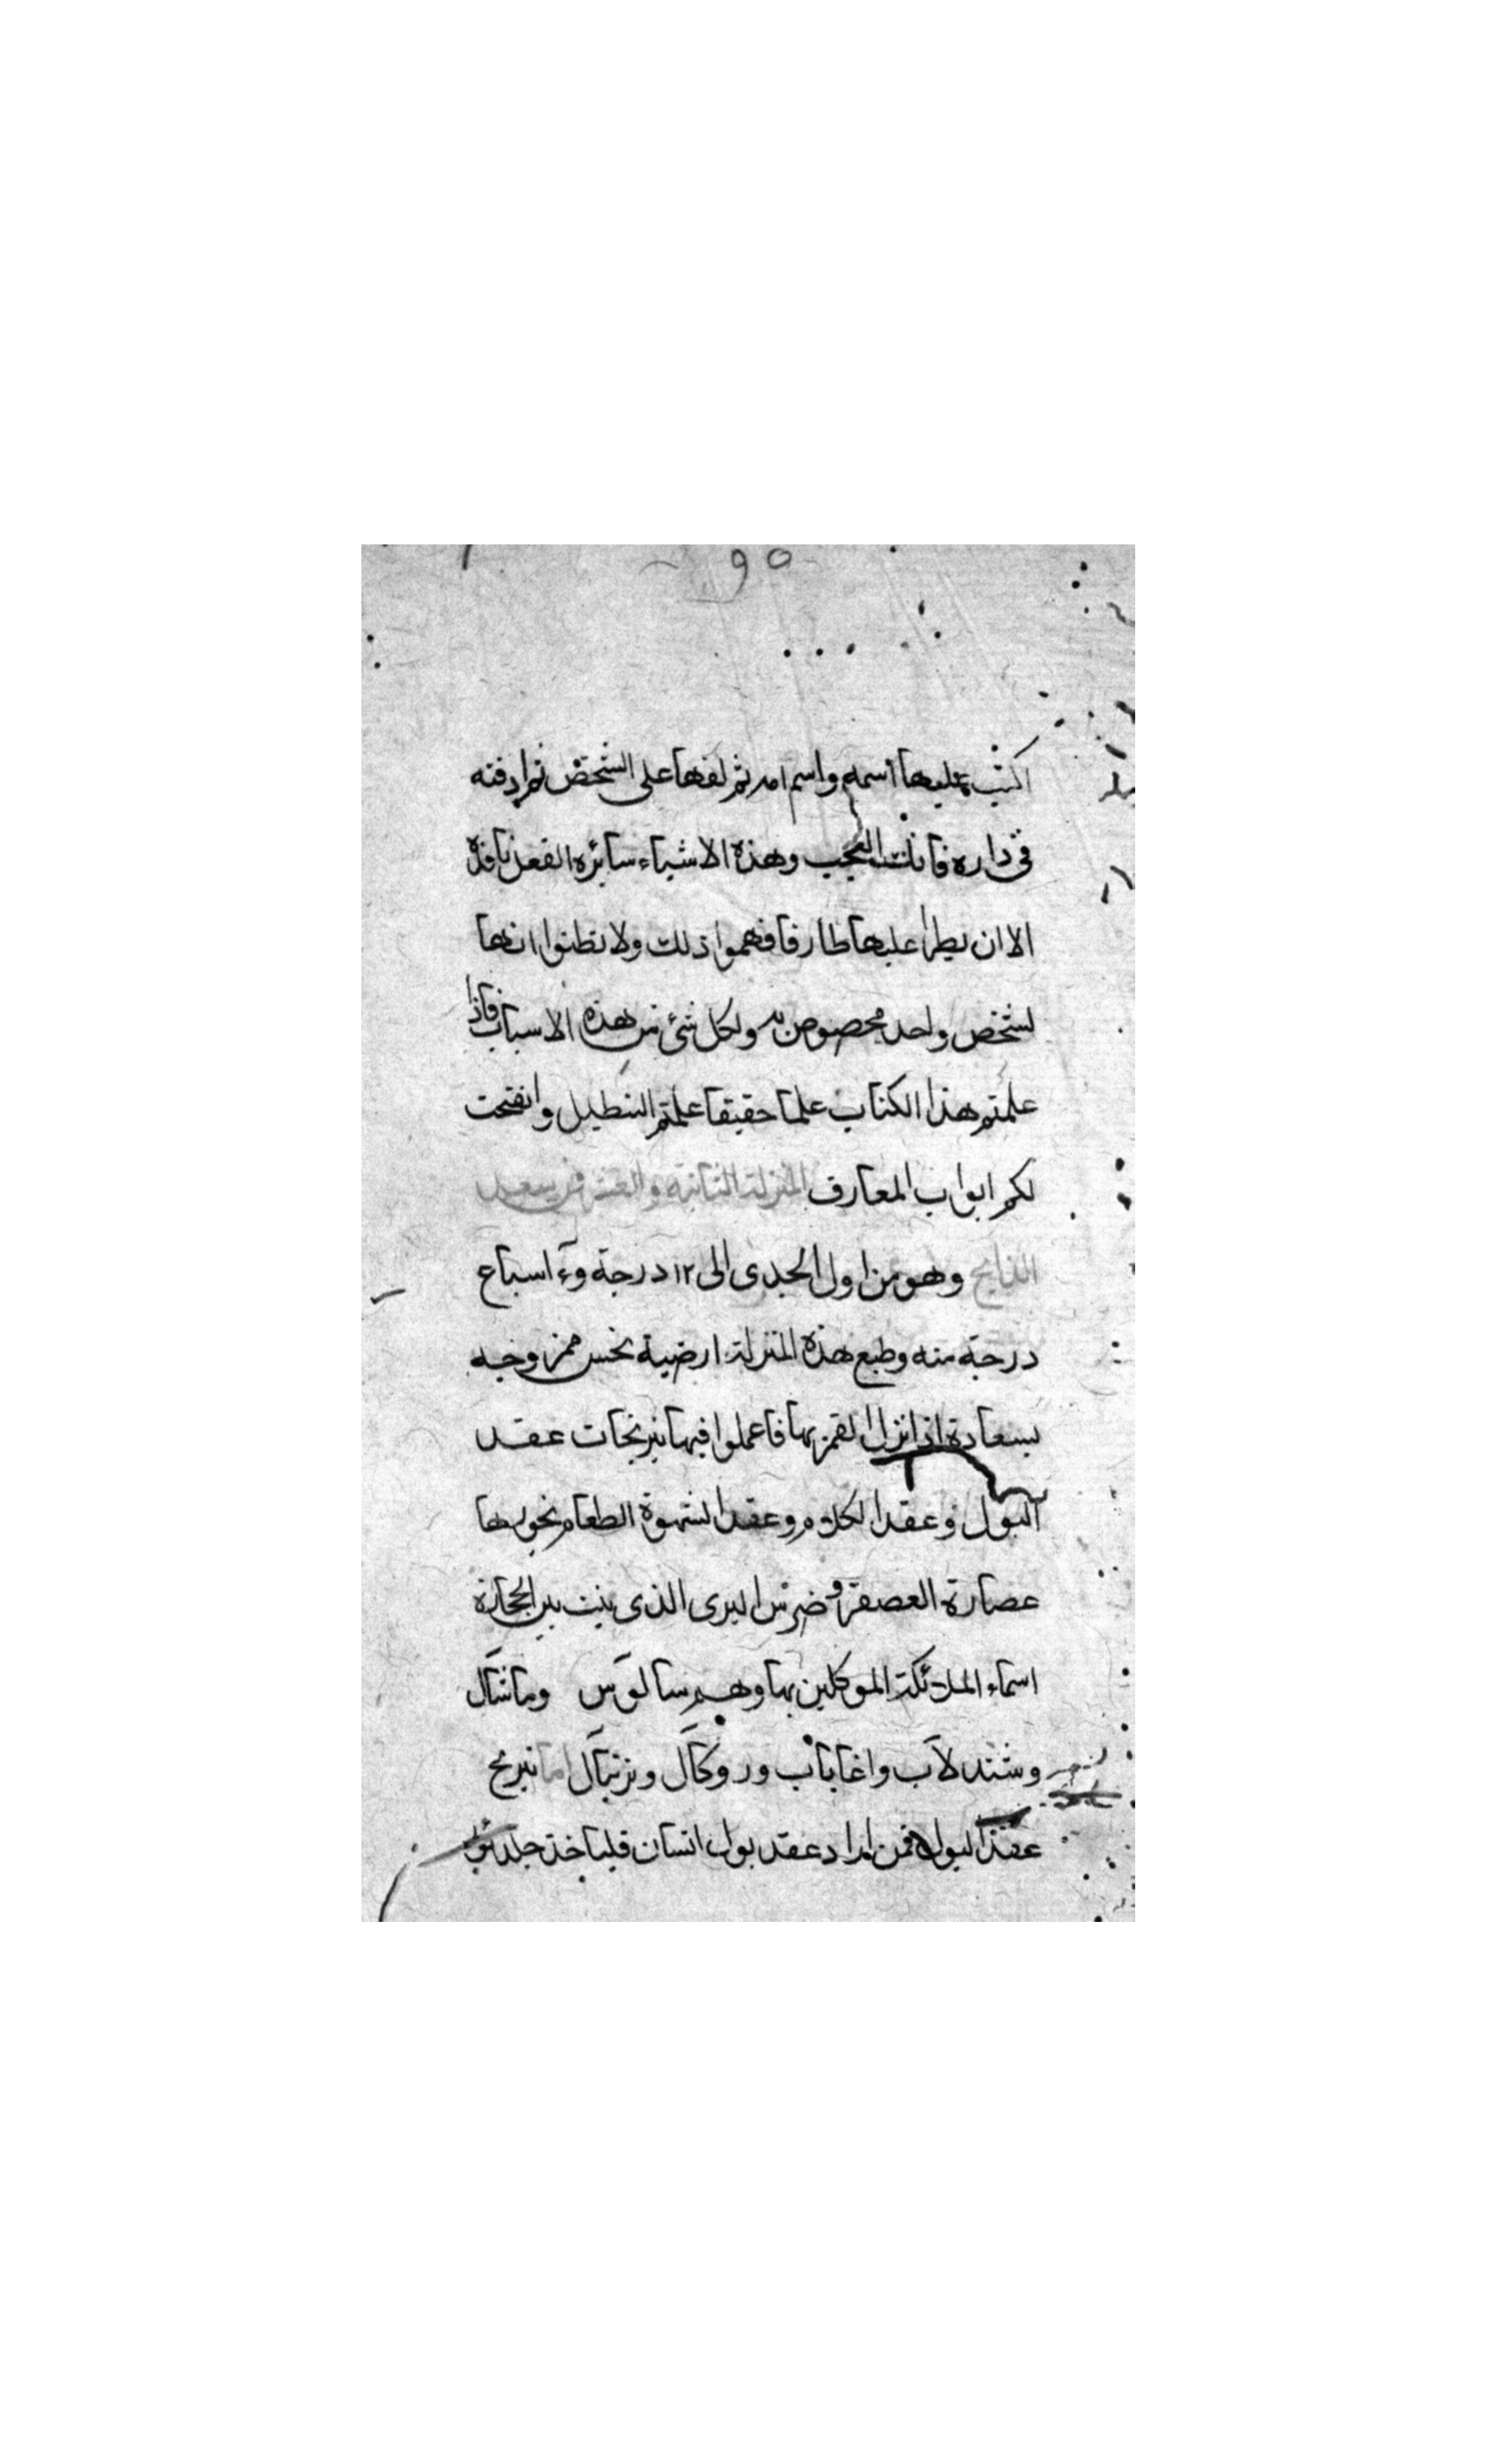 ٩٥
اكتب عليها اسمه واسم امه ثم لفها على الشخص ثم ادفنه
فى داره فانك العجب وهذه الاشياء سائره الفعل نافذة
الا ان يطرا عليها طارفا فهموا ذلك ولا تظنوا انها
لشخص واحد مخصوص به ولكل شئ من هذه الاسباب فاذا
علمتم هذا الكتاب علما حقيقا علمتم التبطيل وانفتحت
لكم ابواب المعارف المنزلة الثانية والعشرون سعد
الذابح وهو من اول الجدى الى ١٢ درجة و٤ اسباع
درجة منه وطبع هذه المنزلة ارضية نحس ممزوجه
بسعادة اذا نزل القمر بها فاعملوا فيها نيرنجات عقد
البول وعقد الكلام وعقد الشهوة الطعام نجورها
عصارة العصفر وضرس البرى الذى ينبت بين الحجارة
اسماء الملائكة الموكلين بها وهم سالوس وماشال
وشندلاب واغاباب وروكال ونزيال اما نيرنج
عقد البول فمن اراد عقد بول انسان فلياخذ جلد